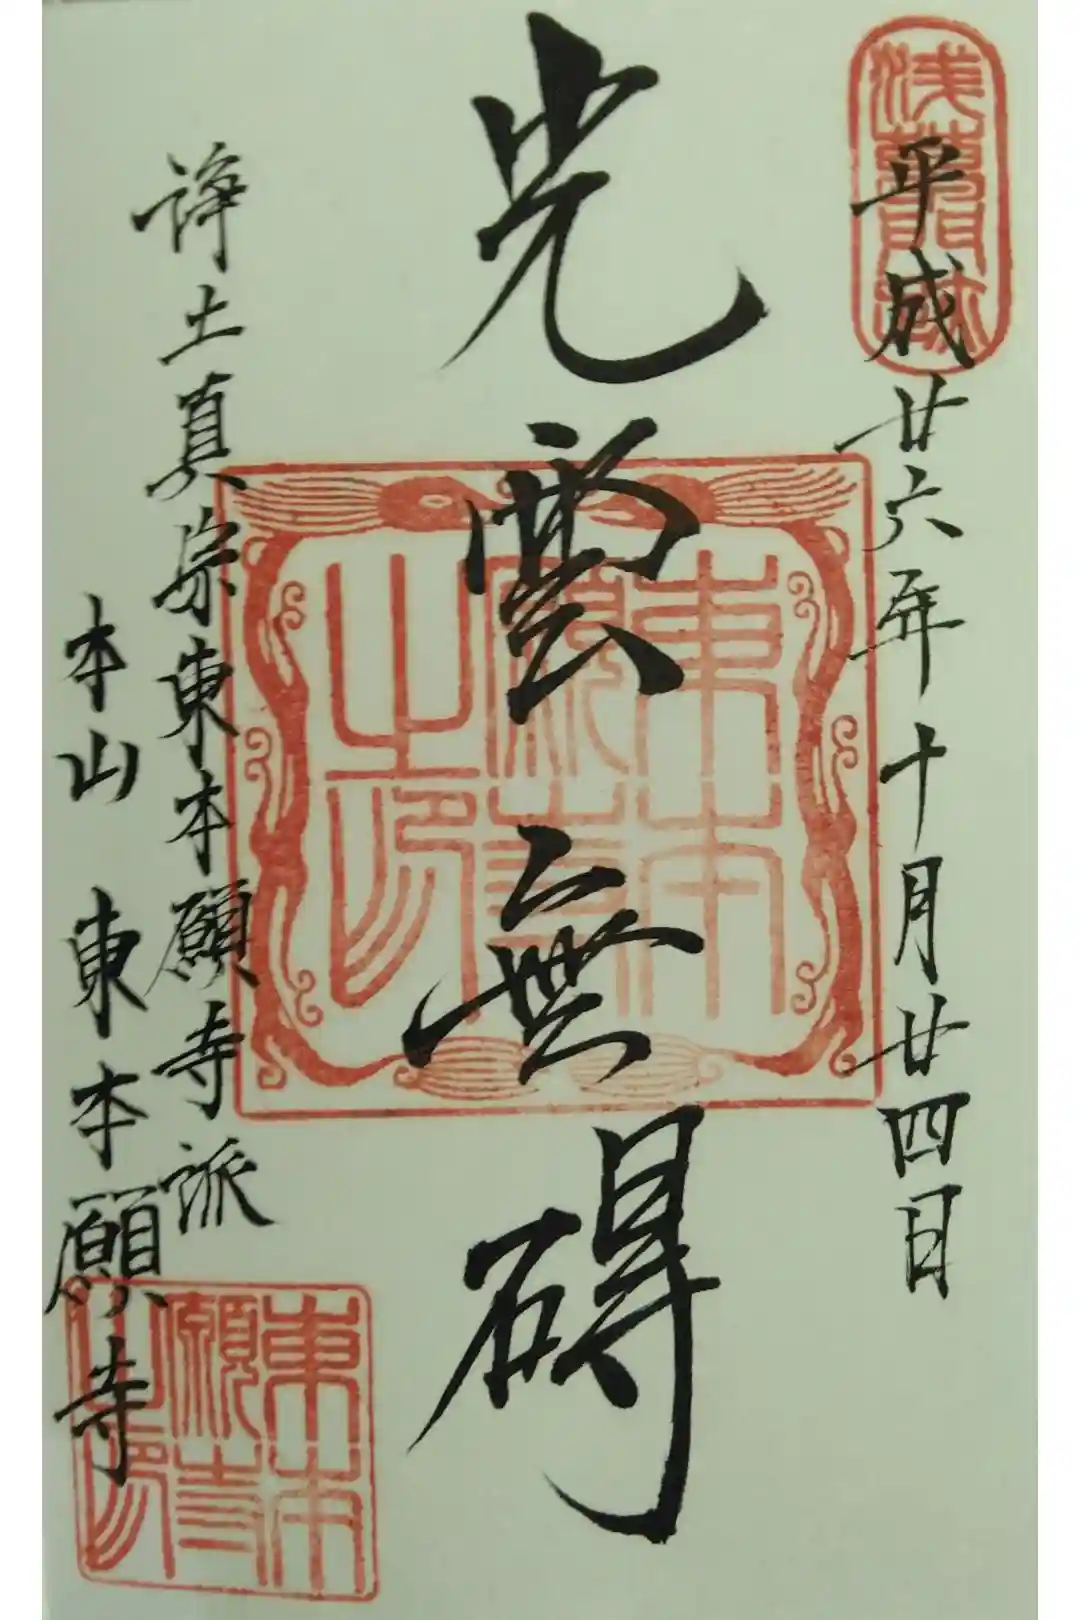 浅草御坊
平成廿六年十月廿四日
光雲無碍
東本願寺之印
浄土真宗東本願寺派
本山 東本願寺
東本願寺之印